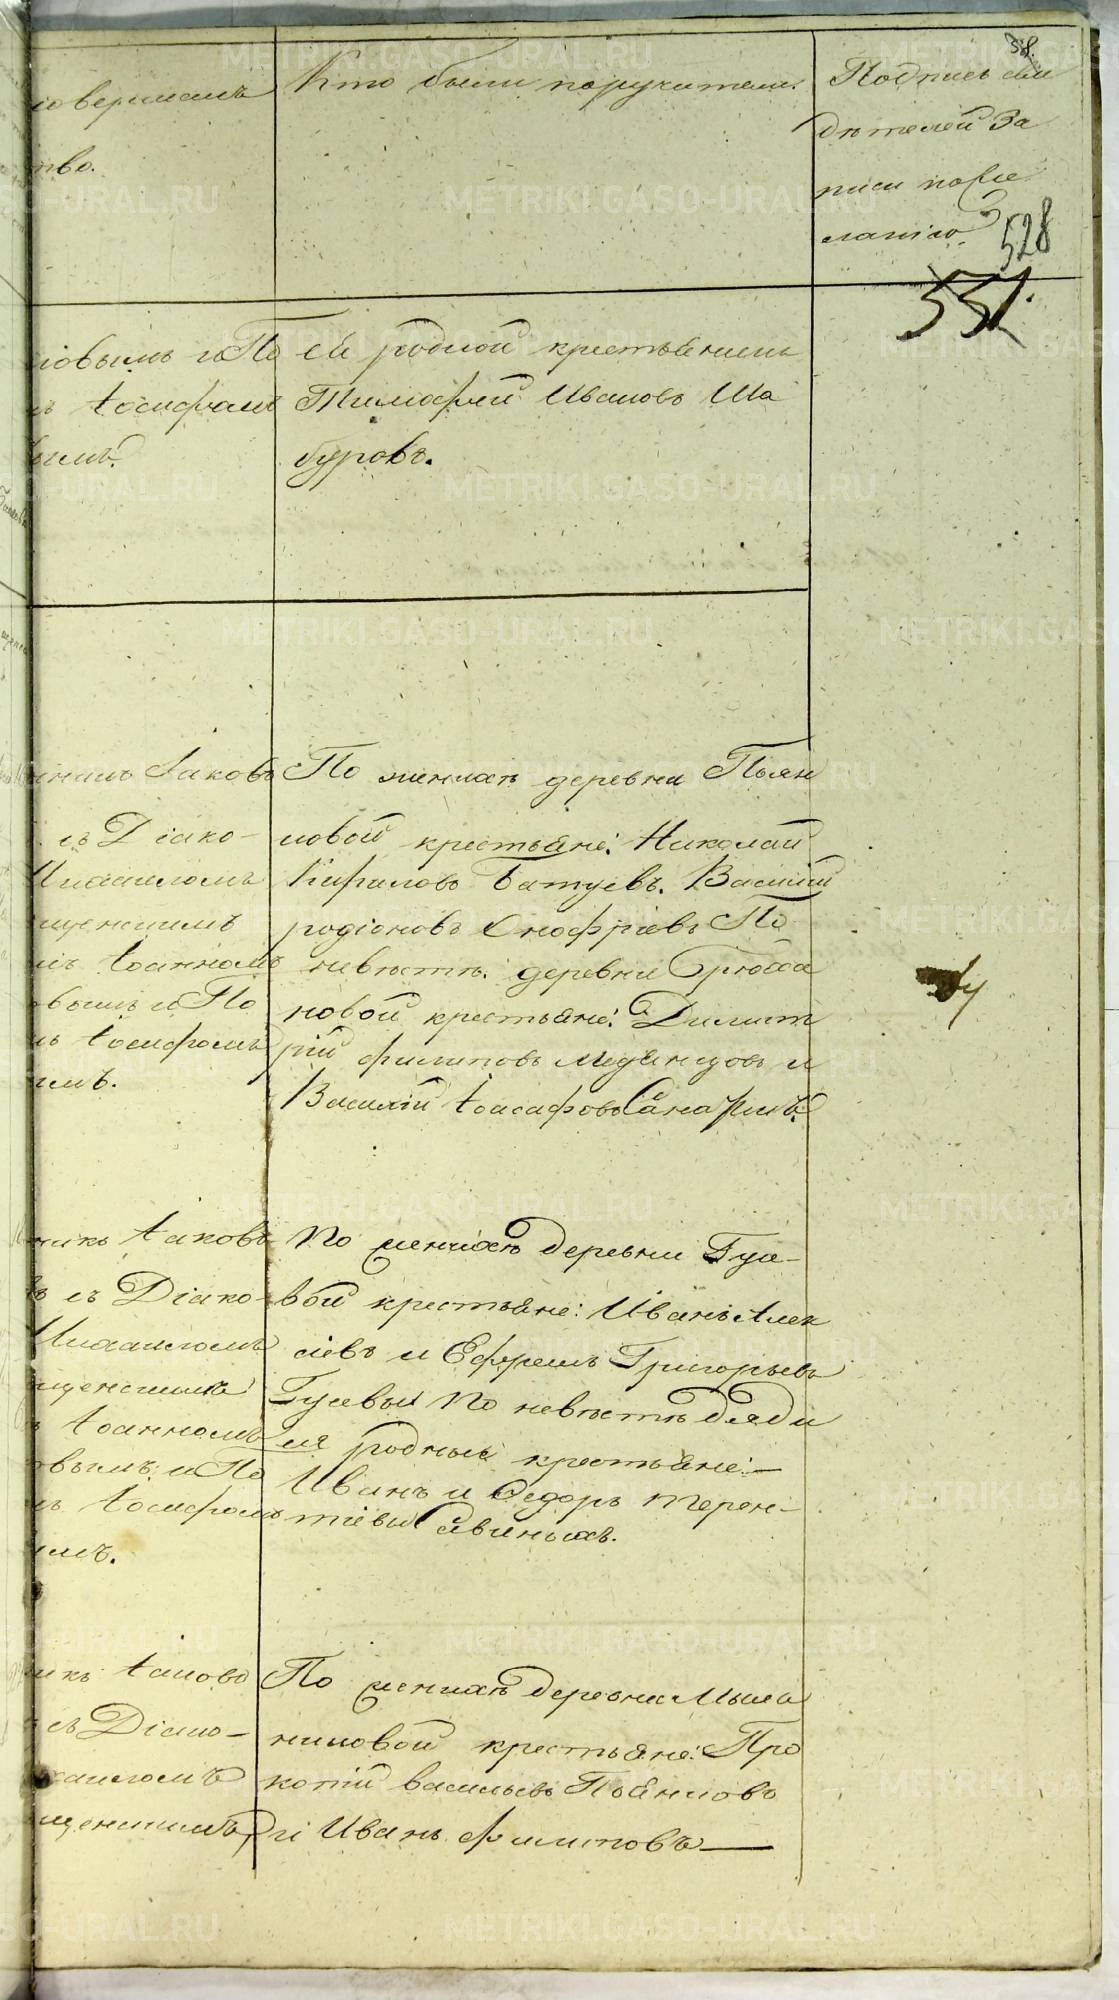 58.
совершалъ
тво.
Кто были поручители.
Подпись сви
дѣтелей За
писи по же
ланію.
528
551.
повымъ и По
ъ Іосифомъ
вымъ.
ей родной крестьянинъ
Тимофей Ивановъ Ша
буровъ.
Іаковъ
съ Діако-
Михаиломъ
щенскимъ
мъ Іоанномъ
овымъ и По
мъ Іосифомъ
имъ.
По женихѣ деревни Пьян
ковой крестьяне: Николай
Кириловъ Батуевъ. Василій
родіоновъ Онофріевъ По
невѣстѣ: деревни
новой крестьяне: Димит
рій филиповъ Медвѣнцовъ и
Василій Іоасафовъ
никъ Іаковъ
ъ съ Діако-
Михаиломъ
щенскимъ
ъ Іоанномъ
овымъ и По
мъ Іосифомъ
имъ.
По женихѣ деревни Гуле-
вой крестьяне: Иванъ Алек
сіевъ и Ефремъ Григорьевъ
Гусевы По невѣстѣ дяди
ея родные крестьяне:—
Иванъ и Ѳедоръ Терен-
тіевы
икъ Іаково
съ Діако-
хаиломъ
щенскимъ,
По женихѣ деревни Мыль
никовой крестьяне: Про
копій васильевъ Пьянковъ
и Иванъ филиповъ —
METRIKI.GASO-URAL.RU